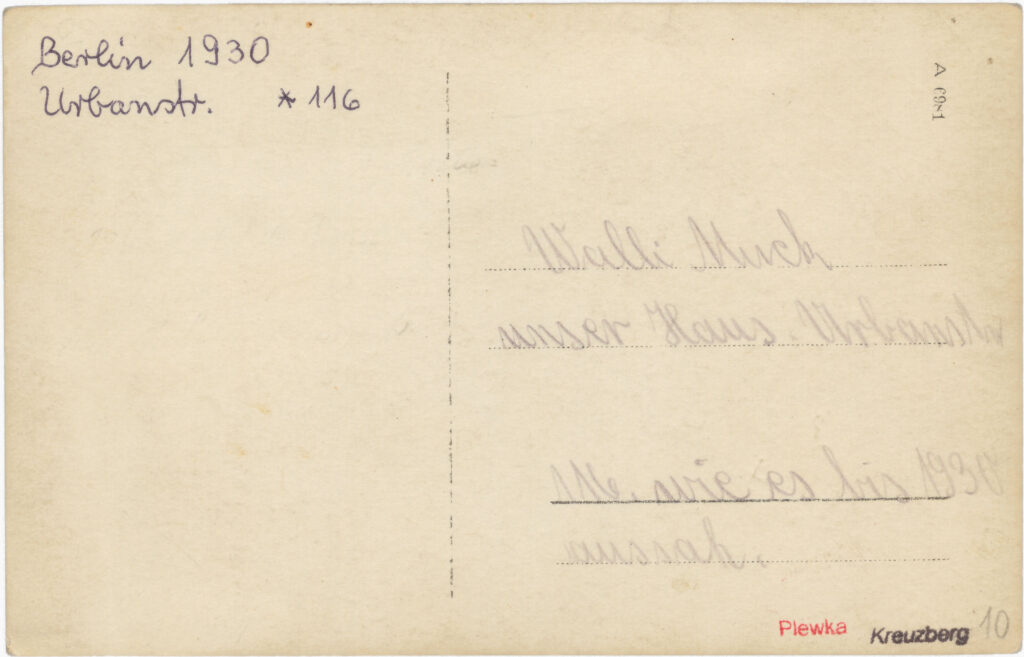 Berlin 1930
Urbanstr. * 116
A 6981
Walli Muck
unser Haus. Urbanstr
116. wie es bis 1930
aussah.
Plewka
Kreuzberg 10